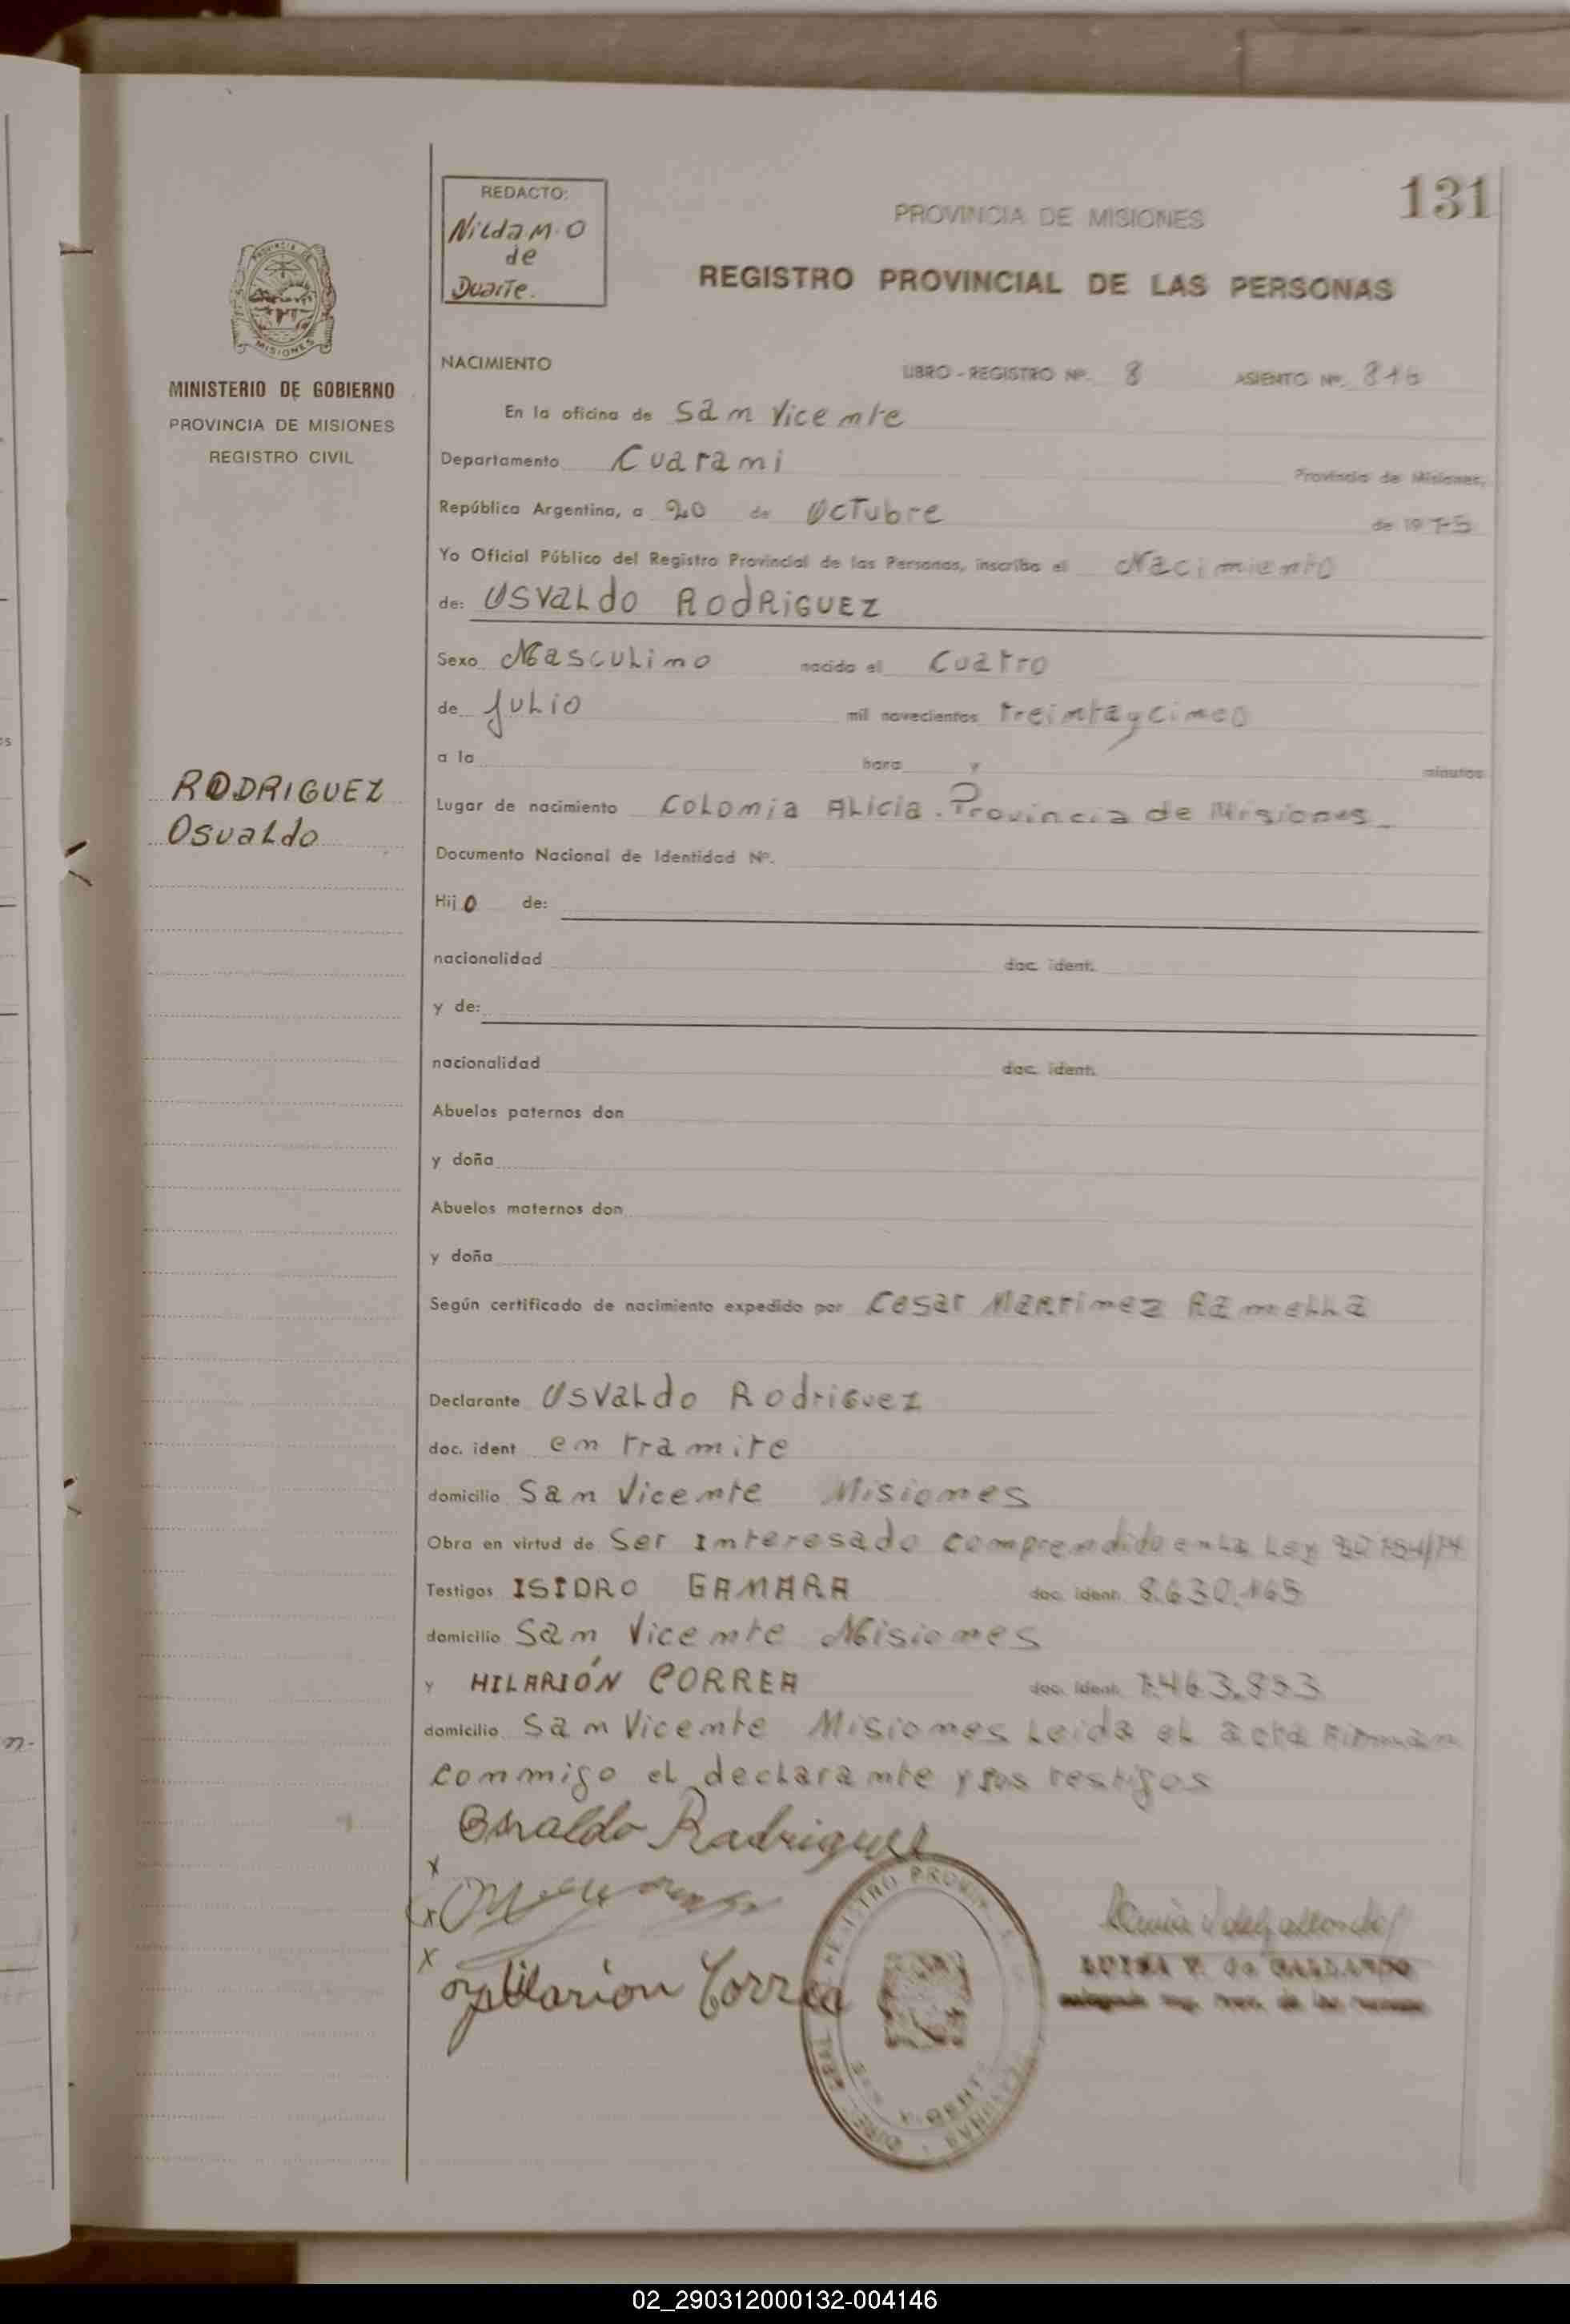 131
REDACTO:
Nilda M. O
de
Duarte.
PROVINCIA DE MISIONES
REGISTRO PROVINCIAL DE LAS PERSONAS
PROVINCIA DE
MISIONES
MINISTERIO DE GOBIERNO
PROVINCIA DE MISIONES
REGISTRO CIVIL
NACIMIENTO LIBRO - REGISTRO Nº. 8 ASIENTO Nº. 816
En la oficina de San Vicente
Departamento Cuarani Provincia de Misiones,
República Argentina, a 20 de Octubre de 1975
Yo Oficial Público del Registro Provincial de las Personas, inscribo el Nacimiento
de: OSVALdO ROdRiGUEZ
Sexo Masculino nacido el Cuatro
de Julio mil novecientos treintaycinco
a la hora y minutos
RODRIGUEZ
Osvaldo
Lugar de nacimiento Colonia Alicia. Provincia de Misiones
Documento Nacional de Identidad Nº.
Hijo de:
nacionalidad doc. ident.
y de:
nacionalidad doc. ident.
Abuelos paternos don
y doña
Abuelos maternos don
y doña
Según certificado de nacimiento expedido por Cesar Martinez Ramella
Declarante Osvaldo Rodriguez
doc. ident en tramite
domicilio San Vicente Misiones
Obra en virtud de Ser Interesado comprendido en la Ley
Testigos ISIDRO GAMARA doc. ident. 8.630.165
domicilio San Vicente Misiones
y HILARIÓN CORREA doc. ident. 7.463.853
domicilio San Vicente Misiones Leida el acta Firman
conmigo el declarante y sus testigos
Osvaldo Rodriguez
x
x
x Hilarion Correa
LUISA V. de GALLARDO
02_290312000132-004146